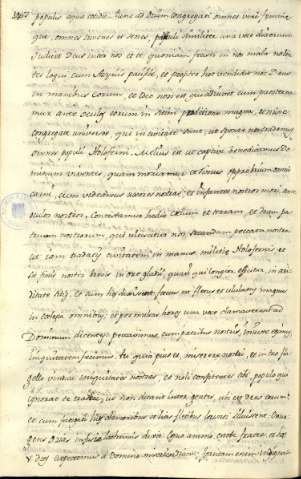 populis aqua cotidie. Tunc ad Oziam congregati omnes viri femine
que, omnes iuvenes et senes, parvuli simul una voce dixerunt
Iudicet Deus inter nos et te quoniam fecisti in nos mala nolen
tes loqui cum Assyriis pacifice, et propter hoc vendidit nos Deus
in manibus eorum, et ideo non est qui adiuvet cum prosterna
mur ante oculos eorum in siti perditione magna, et nunc
congregate universos qui in civitate sunt, ut sponte nos tradamus
omnes populo Holofernis. Melius est ut captivi benedicamus Do
minum viventes, quam moriamur et simus opprobrium omni
carni, cum viderimus uxores nostras, et infantes nostros mori ante
oculos nostros. Contestamur hodie caelum et terram, et Deum pa
trum nostrorum, qui ulciscitur nos secundum peccata nostra
ut iam tradatis civitatem in manus militiae Holofernis et
sit finis noster brevis in ore gladii, qui longior efficitur in ari
ditate sitis. et cum haec dixissent factus est fletus et ululatus magnus
in eclesia omnibus, et per multas horas una voce clamaverunt ad
Dominum dicentes peccavimus cum patribus nostris, iniuste egimus
iniquitatem fecimus. Tu quia pius es, miserere nostri, et in tuo fla
gello vindica iniquitates nostras, et noli confitentes tibi populo qui
ignorat te tradere, ut non dicant inter gentes, ubi est Deus eorum
et cum fatigati his clamoribus et his fletibus lassati siluissent. Exur
gens Ozias infusus lachrimis dixit. Equo animo estote fratres, et hos
V dies expectemus a Domino misericordiam, forsitan enim indigna